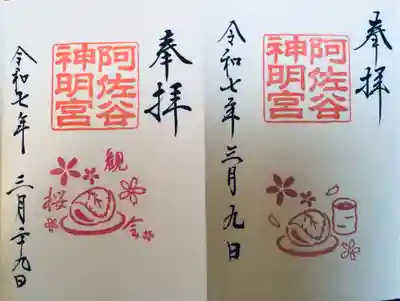 奉拝
阿佐谷
神明宮
観
桜
会
令和七年 三月二十九日
奉拝
阿佐谷
神明宮
令和七年三月九日